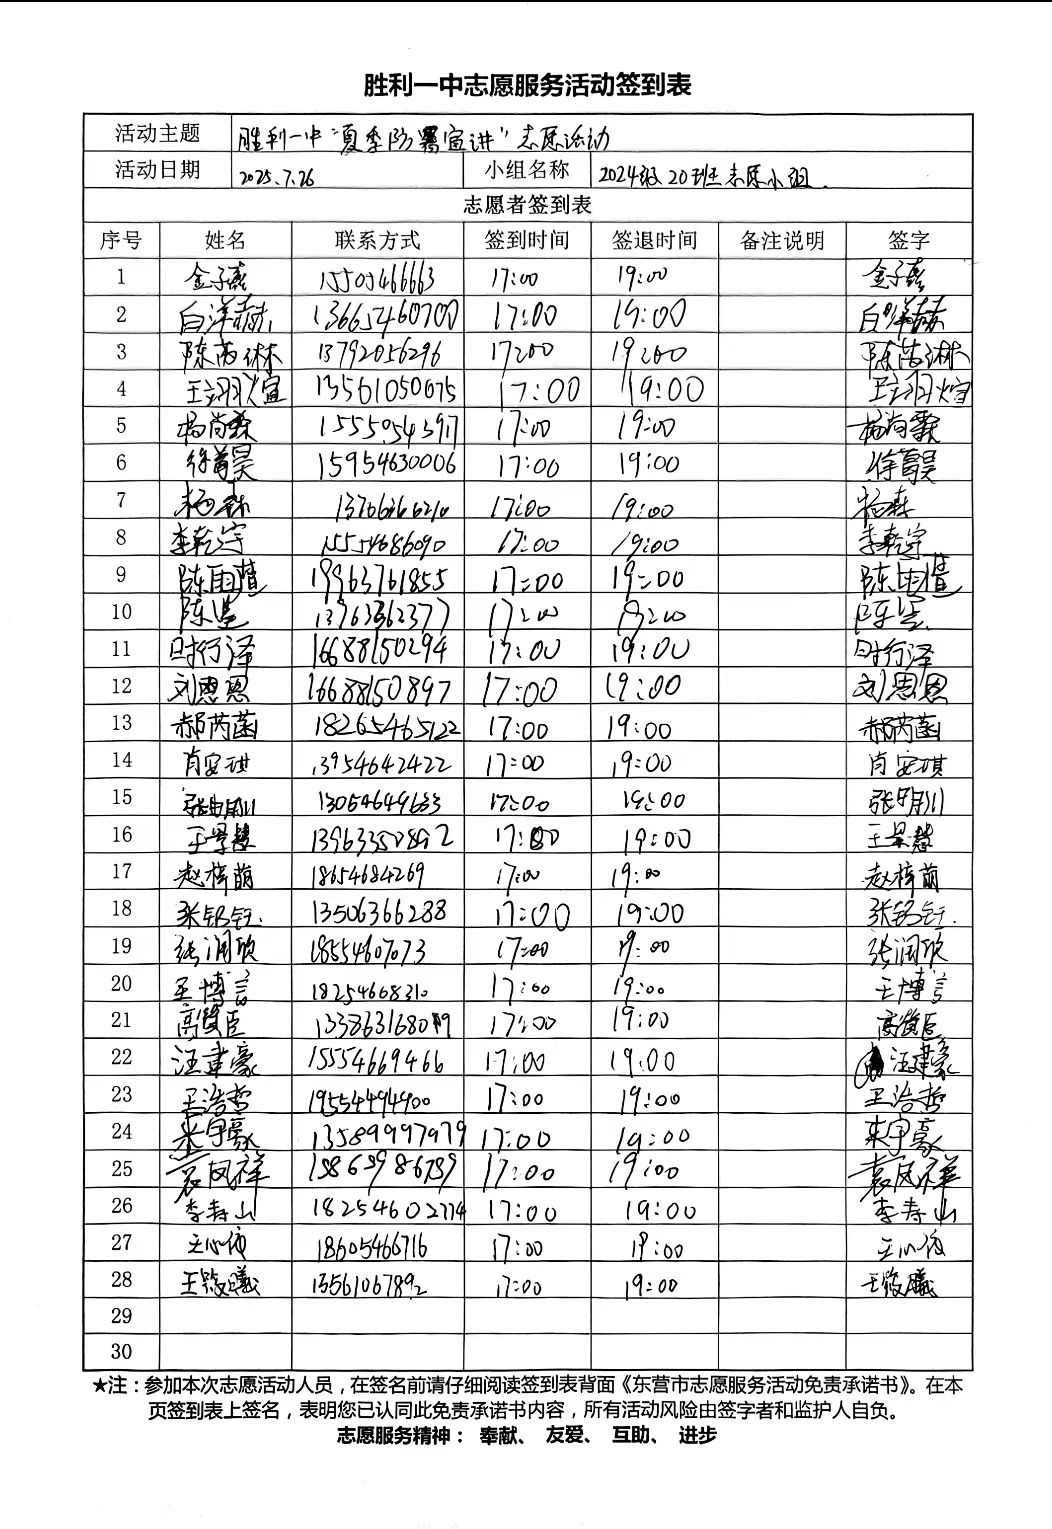 胜利一中志愿服务活动签到表
活动主题 胜利一中“夏季防暑宣讲”志愿活动
活动日期 2025.7.26 小组名称 2024级20班志愿小组.
志愿者签到表
序号 姓名 联系方式 签到时间 签退时间 备注说明 签字
1 金子 15505466663 17:00 19:00 金子
2 白洋赫 13665460700 17:00 19:00 白洋赫
3 陈芮淋 13792056296 17:00 19:00 陈芮淋
4 王翊煊 13561050075 17:00 19:00 王翊煊
5 杨尚霖 15550543917 17:00 19:00 杨尚霖
6 徐昊 15954630006 17:00 19:00 徐昊
7 杨森 17:00 19:00 杨森
8 李乾宇 15554686090 17:00 19:00 李乾宇
9 陈雨萱 19963761855 17:00 19:00 陈雨萱
10 陈 17:00 19:00 陈
11 时行泽 16688150294 17:00 19:00 时行泽
12 刘恩恩 16688150897 17:00 19:00 刘恩恩
13 郝芮菡 18265465122 17:00 19:00 郝芮菡
14 肖安琪 13954642422 17:00 19:00 肖安琪
15 张明川 17:00 19:00 张明川
16 王景慧 17:00 19:00 王景慧
17 赵梓萌 18654684269 17:00 19:00 赵梓萌
18 张铭钰. 13506366288 17:00 19:00 张铭钰.
19 张润欣 18554607073 17:00 19:00 张润欣
20 王博言 18254668310 17:00 19:00 王博言
21 高贤臣 17:00 19:00 高贤臣
22 汪建豪 15554669466 17:00 19:00 汪建豪
23 王浩哲 19554494900 17:00 19:00 王浩哲
24 来宇豪 13589997979 17:00 19:00 来宇豪
25 袁凤祥 15865986789 17:00 19:00 袁凤祥
26 李寿山 18254602774 17:00 19:00 李寿山
27 王心 18605466716 17:00 19:00 王心
28 王曦 13561067892 17:00 19:00 王曦
29
30
★注：参加本次志愿活动人员，在签名前请仔细阅读签到表背面《东营市志愿服务活动免责承诺书》。在本
页签到表上签名，表明您已认同此免责承诺书内容，所有活动风险由签字者和监护人自负。
志愿服务精神： 奉献、 友爱、 互助、 进步